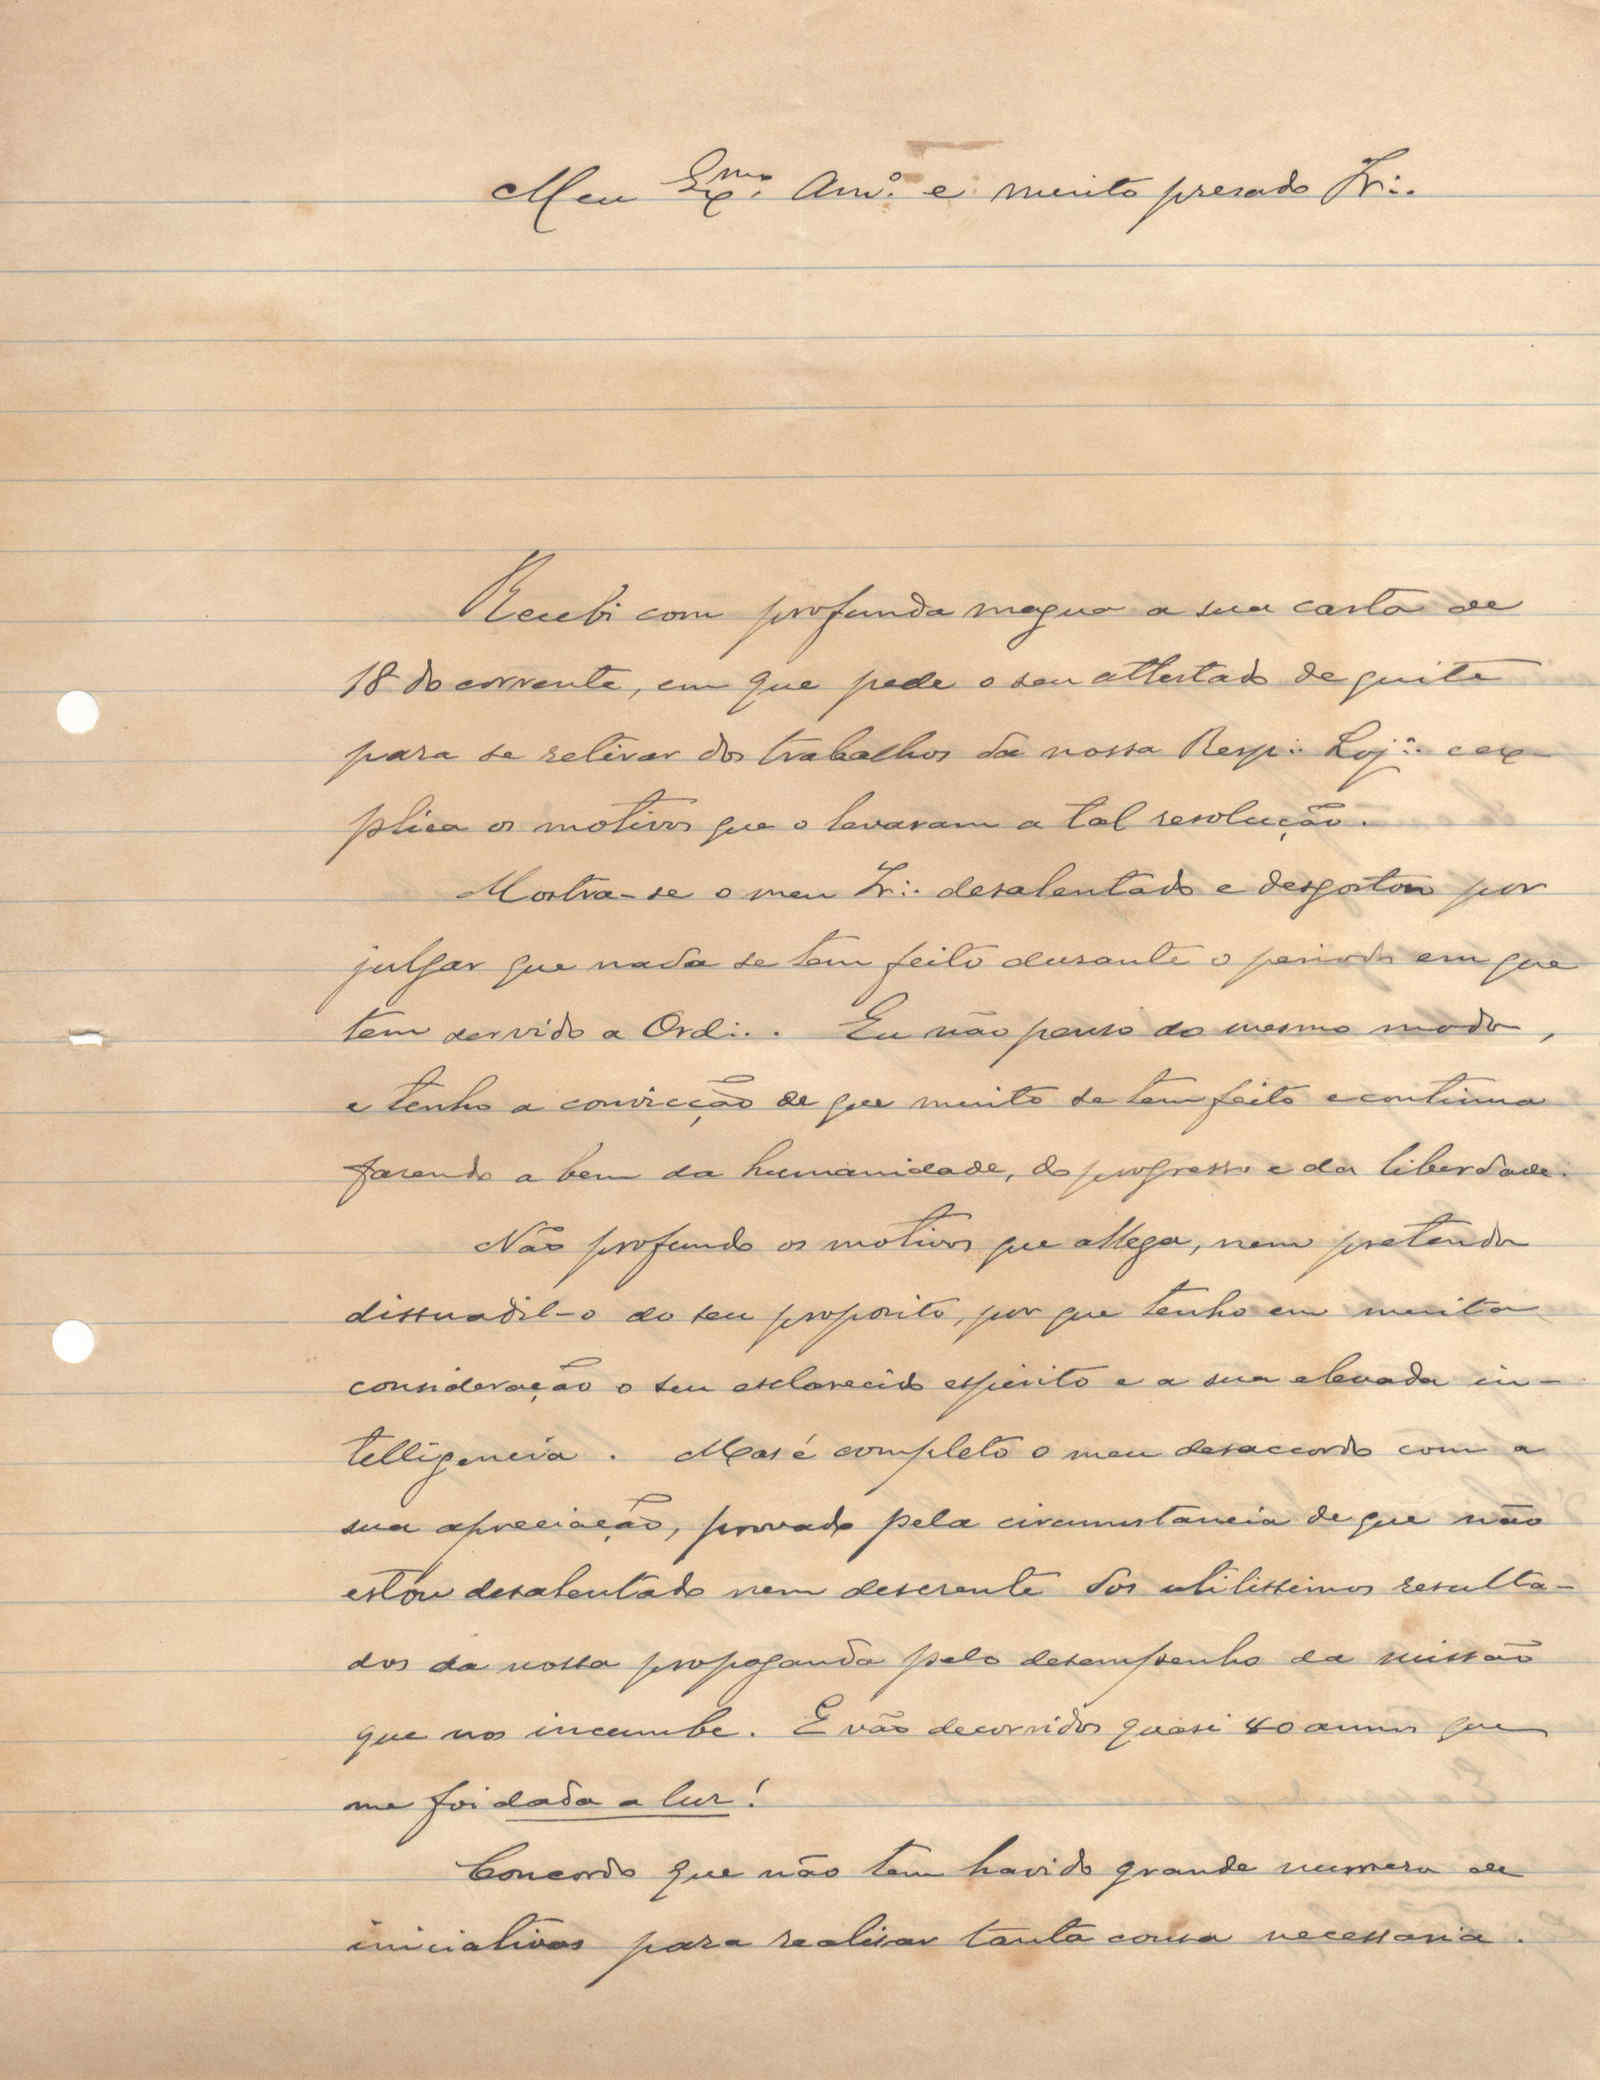 Meu Exmo. Amo. e muito presado Ir∴
Recebi com profunda magua a sua carta de
18 do corrente, em que pede o seu attestado de quite
para se retirar dos trabalhos da nossa Resp∴ Loj∴ e ex-
plica os motivos que o levaram a tal resolução.
Mostra-se o meu Ir∴ desalentado e desgostoso por
julgar que nada se tem feito durante o periodo em que
tem servido a Ord∴. Eu não penso do mesmo modo,
e tenho a convicção de que muito se tem feito e continua
fazendo a bem da humanidade, do progresso e da liberdade.
Não profundo os motivos que allega, nem pretendo
dissuadil-o do seu proposito, por que tenho em muita
consideração o seu esclarecido espirito e a sua elevada in-
telligencia. Mas é completo o meu desaccordo com a
sua apreciação, provado pela circumstancia de que não
estou desalentado nem descrente dos utilissimos resulta-
dos da nossa propaganda pelo desempenho da missão
que nos incumbe. E vão decorridos quasi 40 annos que
me foi dada a luz!
Concordo que não tem havido grande numero de
iniciativas para realisar tanta cousa necessaria.